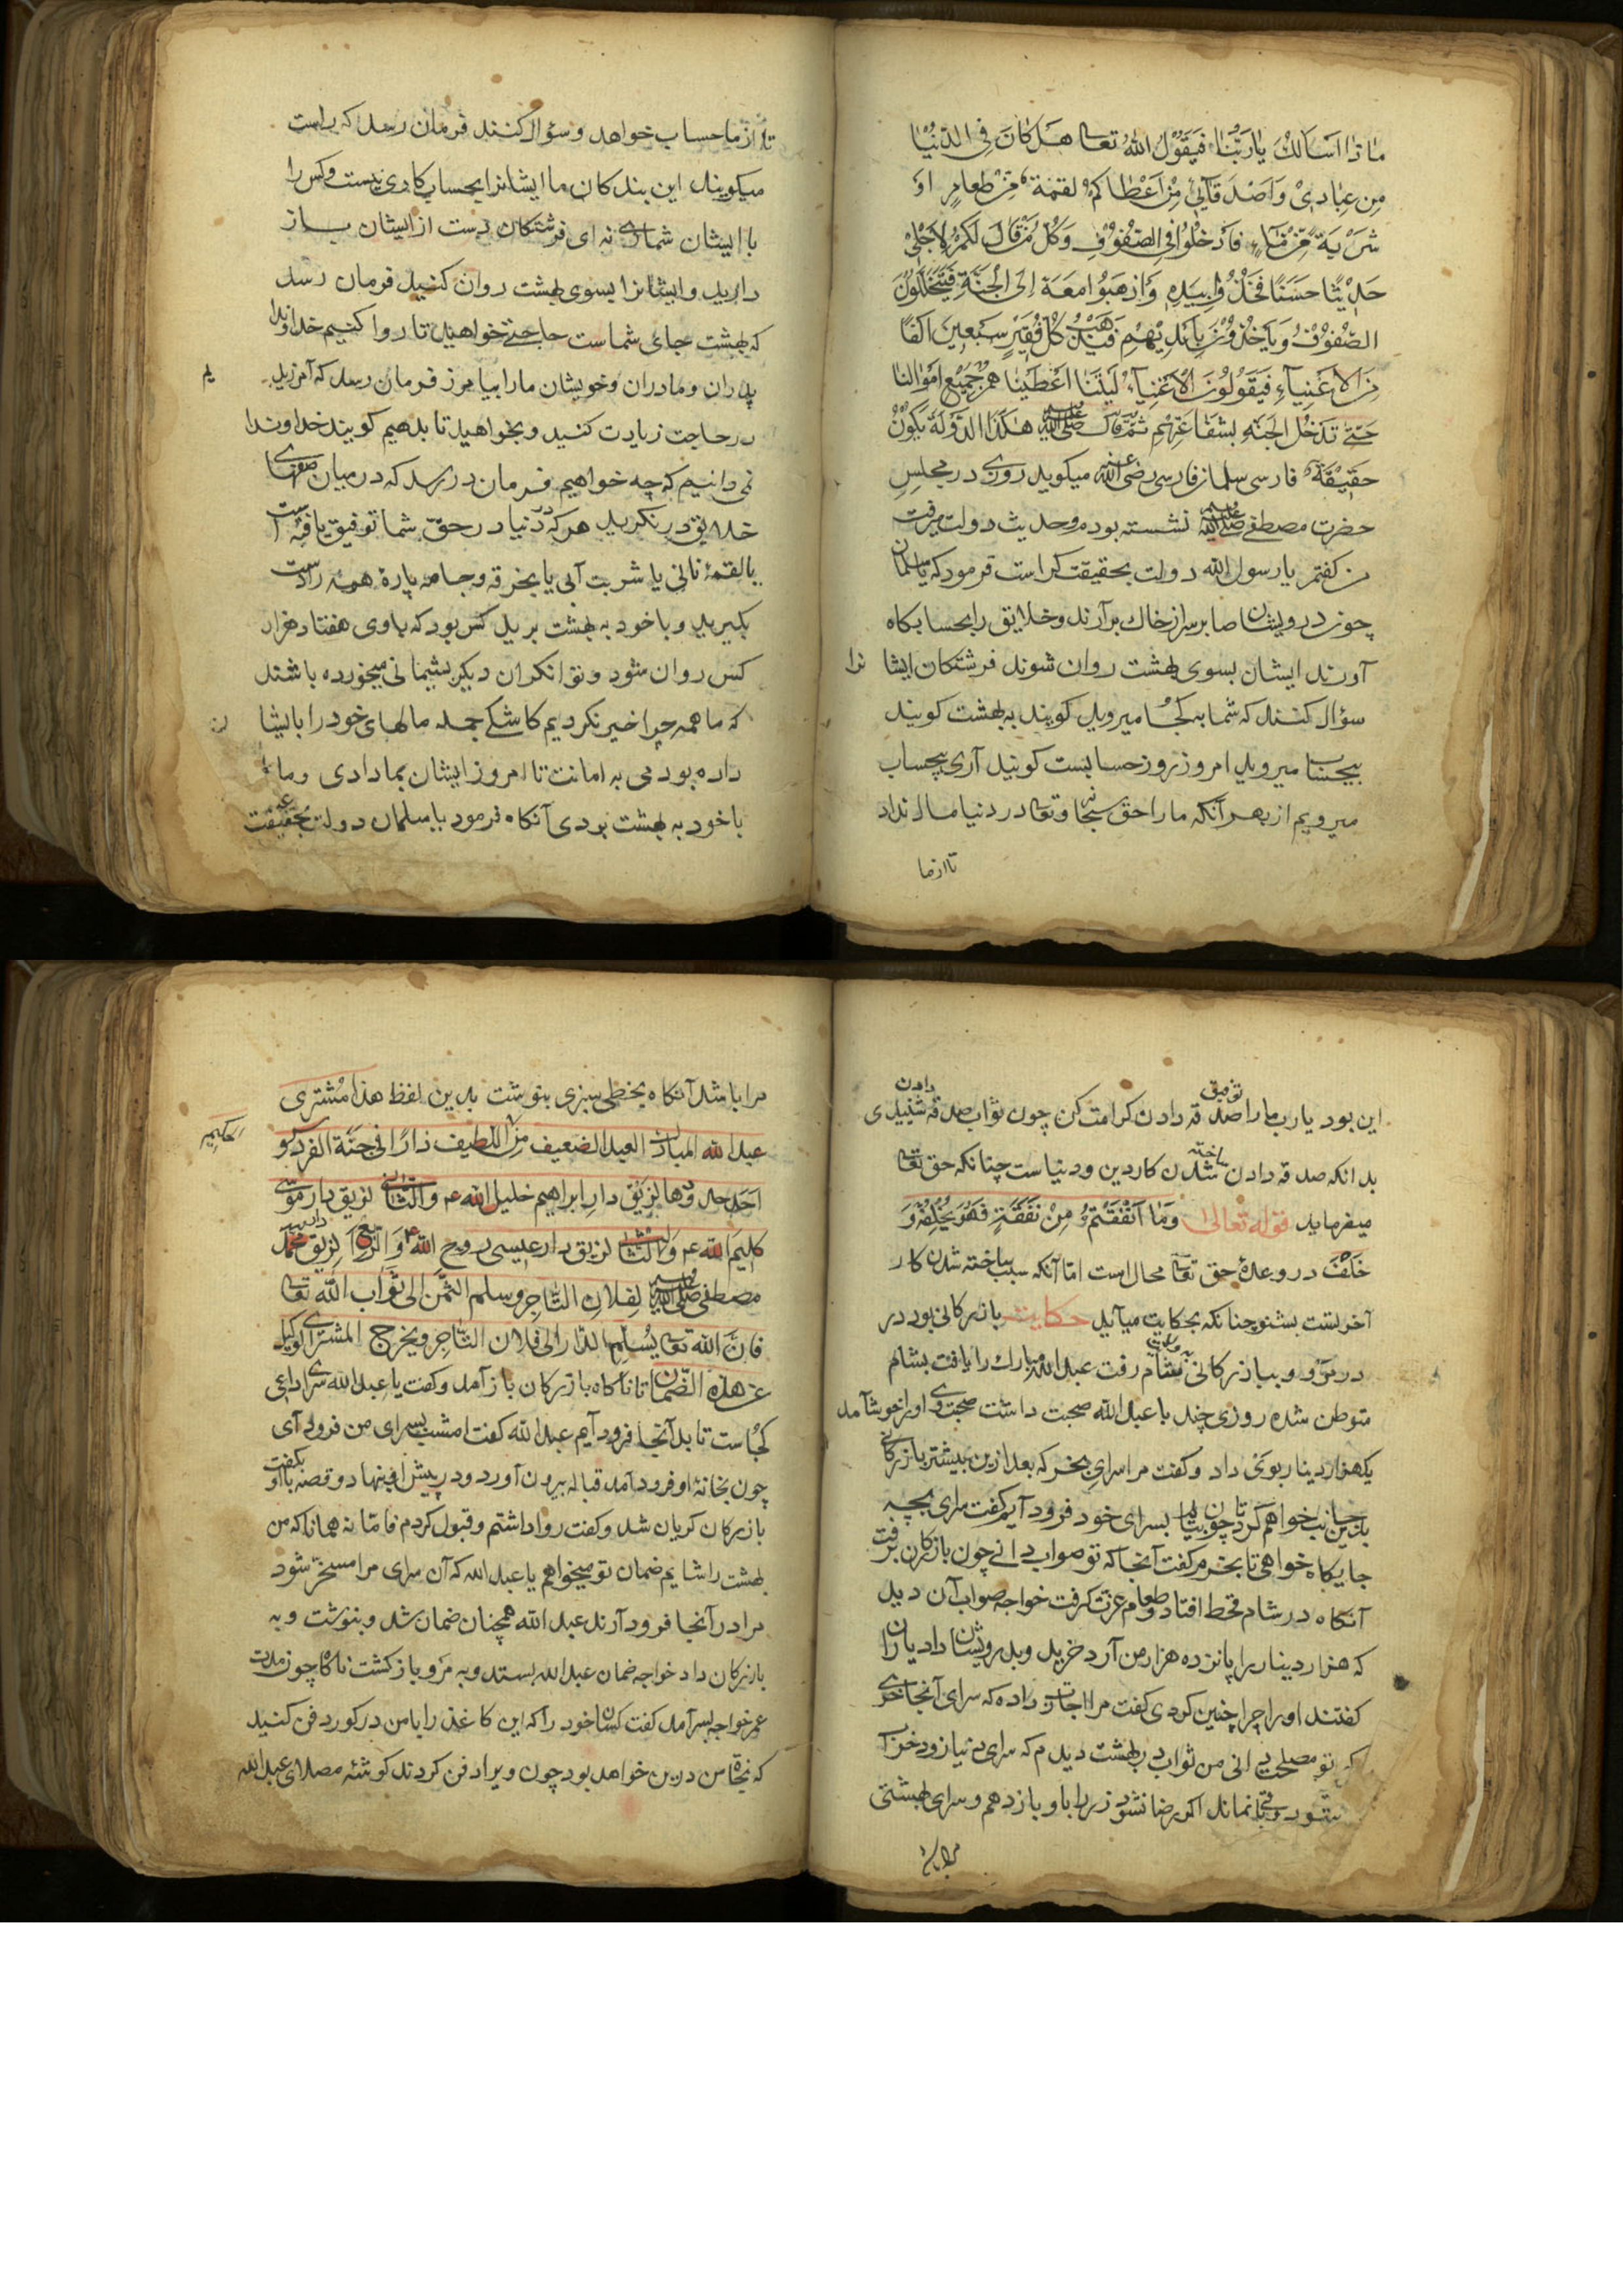 ماذا اسألك یا ربّنا فیقول الله تعالی هل کان فی الدّنیا
من عبادی واصدقائی من اعطاکم لقمة من طعام او
شربة من ماء فادخلوا فی الصّفوف وکلّ من قال لکم لاجلی
حدیثا حسنا فخذوا بیده واذهبوا معه الی الجنّة فیتخلّلون
الصّفوف ویأخذون بایدیهم فیذهب کل فقیر سبعین الفا
من الاغنیاء فیقولون الاغنیاء لیتنا اعطینا هم جمیع اموالنا
حتی تدخل الجنه بشفاعتهم ثمّ قال صلی الله علیه هکذا الدّولة یکون
حقیقة فارسی سلمان فارسی رضی الله عنه میکوید روزی در مجلس
حضرت مصطفی صلی الله علیه نشسته بودم وحدیث دولت میرفت
من کفتم یا رسول الله دولت بحقیقت کراست فرمود که یا سلمان
چون درویشان صابر سر از خاک برآرند وخلایق را بحسابکاه
آورند ایشان بسوی بهشت روان شوند فرشتکان ایشا نرا
سؤال کنند که شما به کجا میروید کویند به بهشت کویند
بیحساب میروید امروز روز حسابست کویند آری بیحساب
میرویم از بهر آنکه ما را حق سبحانه وتعالی در دنیا مال نداد
تا از ما
تا از ما حساب خواهد وسؤال کنند فرمان رسد که راست
میکویند این بندکان ما ایشانرا بحساب کاری نیست وکس را
با ایشان شماری نه ای فرشتکان دست از ایشان باز
دارید وایشانرا بسوی بهشت روان کنید فرمان رسد
که بهشت جای شماست حاجتی خواهید تا روا کنیم خداوندا
پدران ومادران وخویشان ما را بیامرز فرمان رسد که آمرزیدیم
در حاجت زیادت کنید وبخواهید تا بدهیم کویند خداوندا
نمی دانیم که چه خواهیم فرمان در رسد که در میان صفهای
خلایق در نکرید هر که در دنیا در حق شما توفیق یافته است
بالقمهٔ نانی یا شربت آبی یا بخرقه وجامه پارهٔ همه را دست
بکیرید وباخود به بهشت برید کس بود که باوی هفتاد هزار
کس روان شود وتوانکران دیکر پشیمانی میخورده باشند
که ما همه چرا خیر نکردیم کاشکی جمله مالهای خود را بایشان
داده بودمی به امانت تا امروز ایشان بما دادی وما را
باخود به بهشت بردی آنکاه فرمود یا سلمان دولت بحقیقت
این بود یارب ما را توفیق صدقه دادن کرامت کن چون ثواب صدقه دادن شنیدی
بدانکه صدقه دادن ساخته شدن کار دین ودنیاست چنانکه حق تعالی
میفرماید قوله تعالی وما انفقتم من نفقة فهو یخلفه و
خلف در وعدهٔ حق تعالی محال است امّا آنکه سبب ساخته شدن کار
آخرتست بشنو چنانکه بحکایت میآید حکایت بازرکانی بود در
در مرو وببازرکانی بشام رفت عبدالله مبارک را یافت بشام
متوطن شده روزی چند با عبد الله صحبت داشت صحبت وی او را خوش آمد
یکهزار دینار بوی داد وکفت مرا سرای بخر که بعد ازین بیشتر بازرکانی
بدین جانب خواهم کرد تا چون بیایم بسرای خود فرود آیم کفت سرای بچه
جایکاه خواهی تا بخرم کفت آنجا که تو صواب دانی چون بازرکان برفت
آنکاه در شام قحط افتاد وطعام عزت کرفت خواجه صواب آن دید
که هزار دینار را پانزده هزار من آرد خرید وبدرویشان داد یاران
کفتند او را چرا چنین کردی کفت مرا اجازت داده که سرای آنجا خری
که تو مصلحت دانی من ثواب در بهشت دیدم که سرای دنیا زود خراب
شود وقتی نماند اکر رضا نشود زر را باو باز دهم وسرای بهشتی
مرا باشد
مرا باشد آنکاه بخطی سبزی بنوشت بدین لفظ هذا مشتری
عبد الله المبارک العبد الضعیف من اللطیف دارًا فی جنّة الفردوس
احد حدودها لزیق دار ابراهیم خلیل الله ع والثانی لزیق دار موسی
کلیم الله ع والثالث لزیق دار عیسی روح الله ع والرابع لزیق دار محمّد
مصطفی صلی الله علیه لفلان التاجر وسلم الثمن الی ثواب الله تعالی
فانّ الله تعالی یسلم الدار الی فلان التاجر ویخرج المشتری الوکیل
عن هذه الضّمان تا ناکاه بازرکان باز آمد وکفت یا عبد الله سرای
کجاست تا بدآنجا فرود آیم عبد الله کفت امشب بسرای من فرود آی
چون بخانهٔ او فرود آمد قباله بیرون آورد ودر پیش او بنهاد وقصه با او بکفت
بازرکان کریان شد وکفت روا داشتم وقبول کردم فامّا نه همانا که من
بهشت را شایم ضمان تو میخواهم یا عبد الله که آن سرای مرا مسخّر شود
مرا در آنجا فرود آرند عبد الله همچنان ضمان شد وبنوشت وبه
بازرکان داد خواجه ضمان عبد الله بستد وبه مرو باز کشت ناکاه چون مدت
عمر خواجه بسر آمد کفت کسان خود را که این کاغذ را با من در کور دفن کنید
که نجاة من درین خواهد بود چون ویرا دفن کردند کوشئه مصلای عبد الله